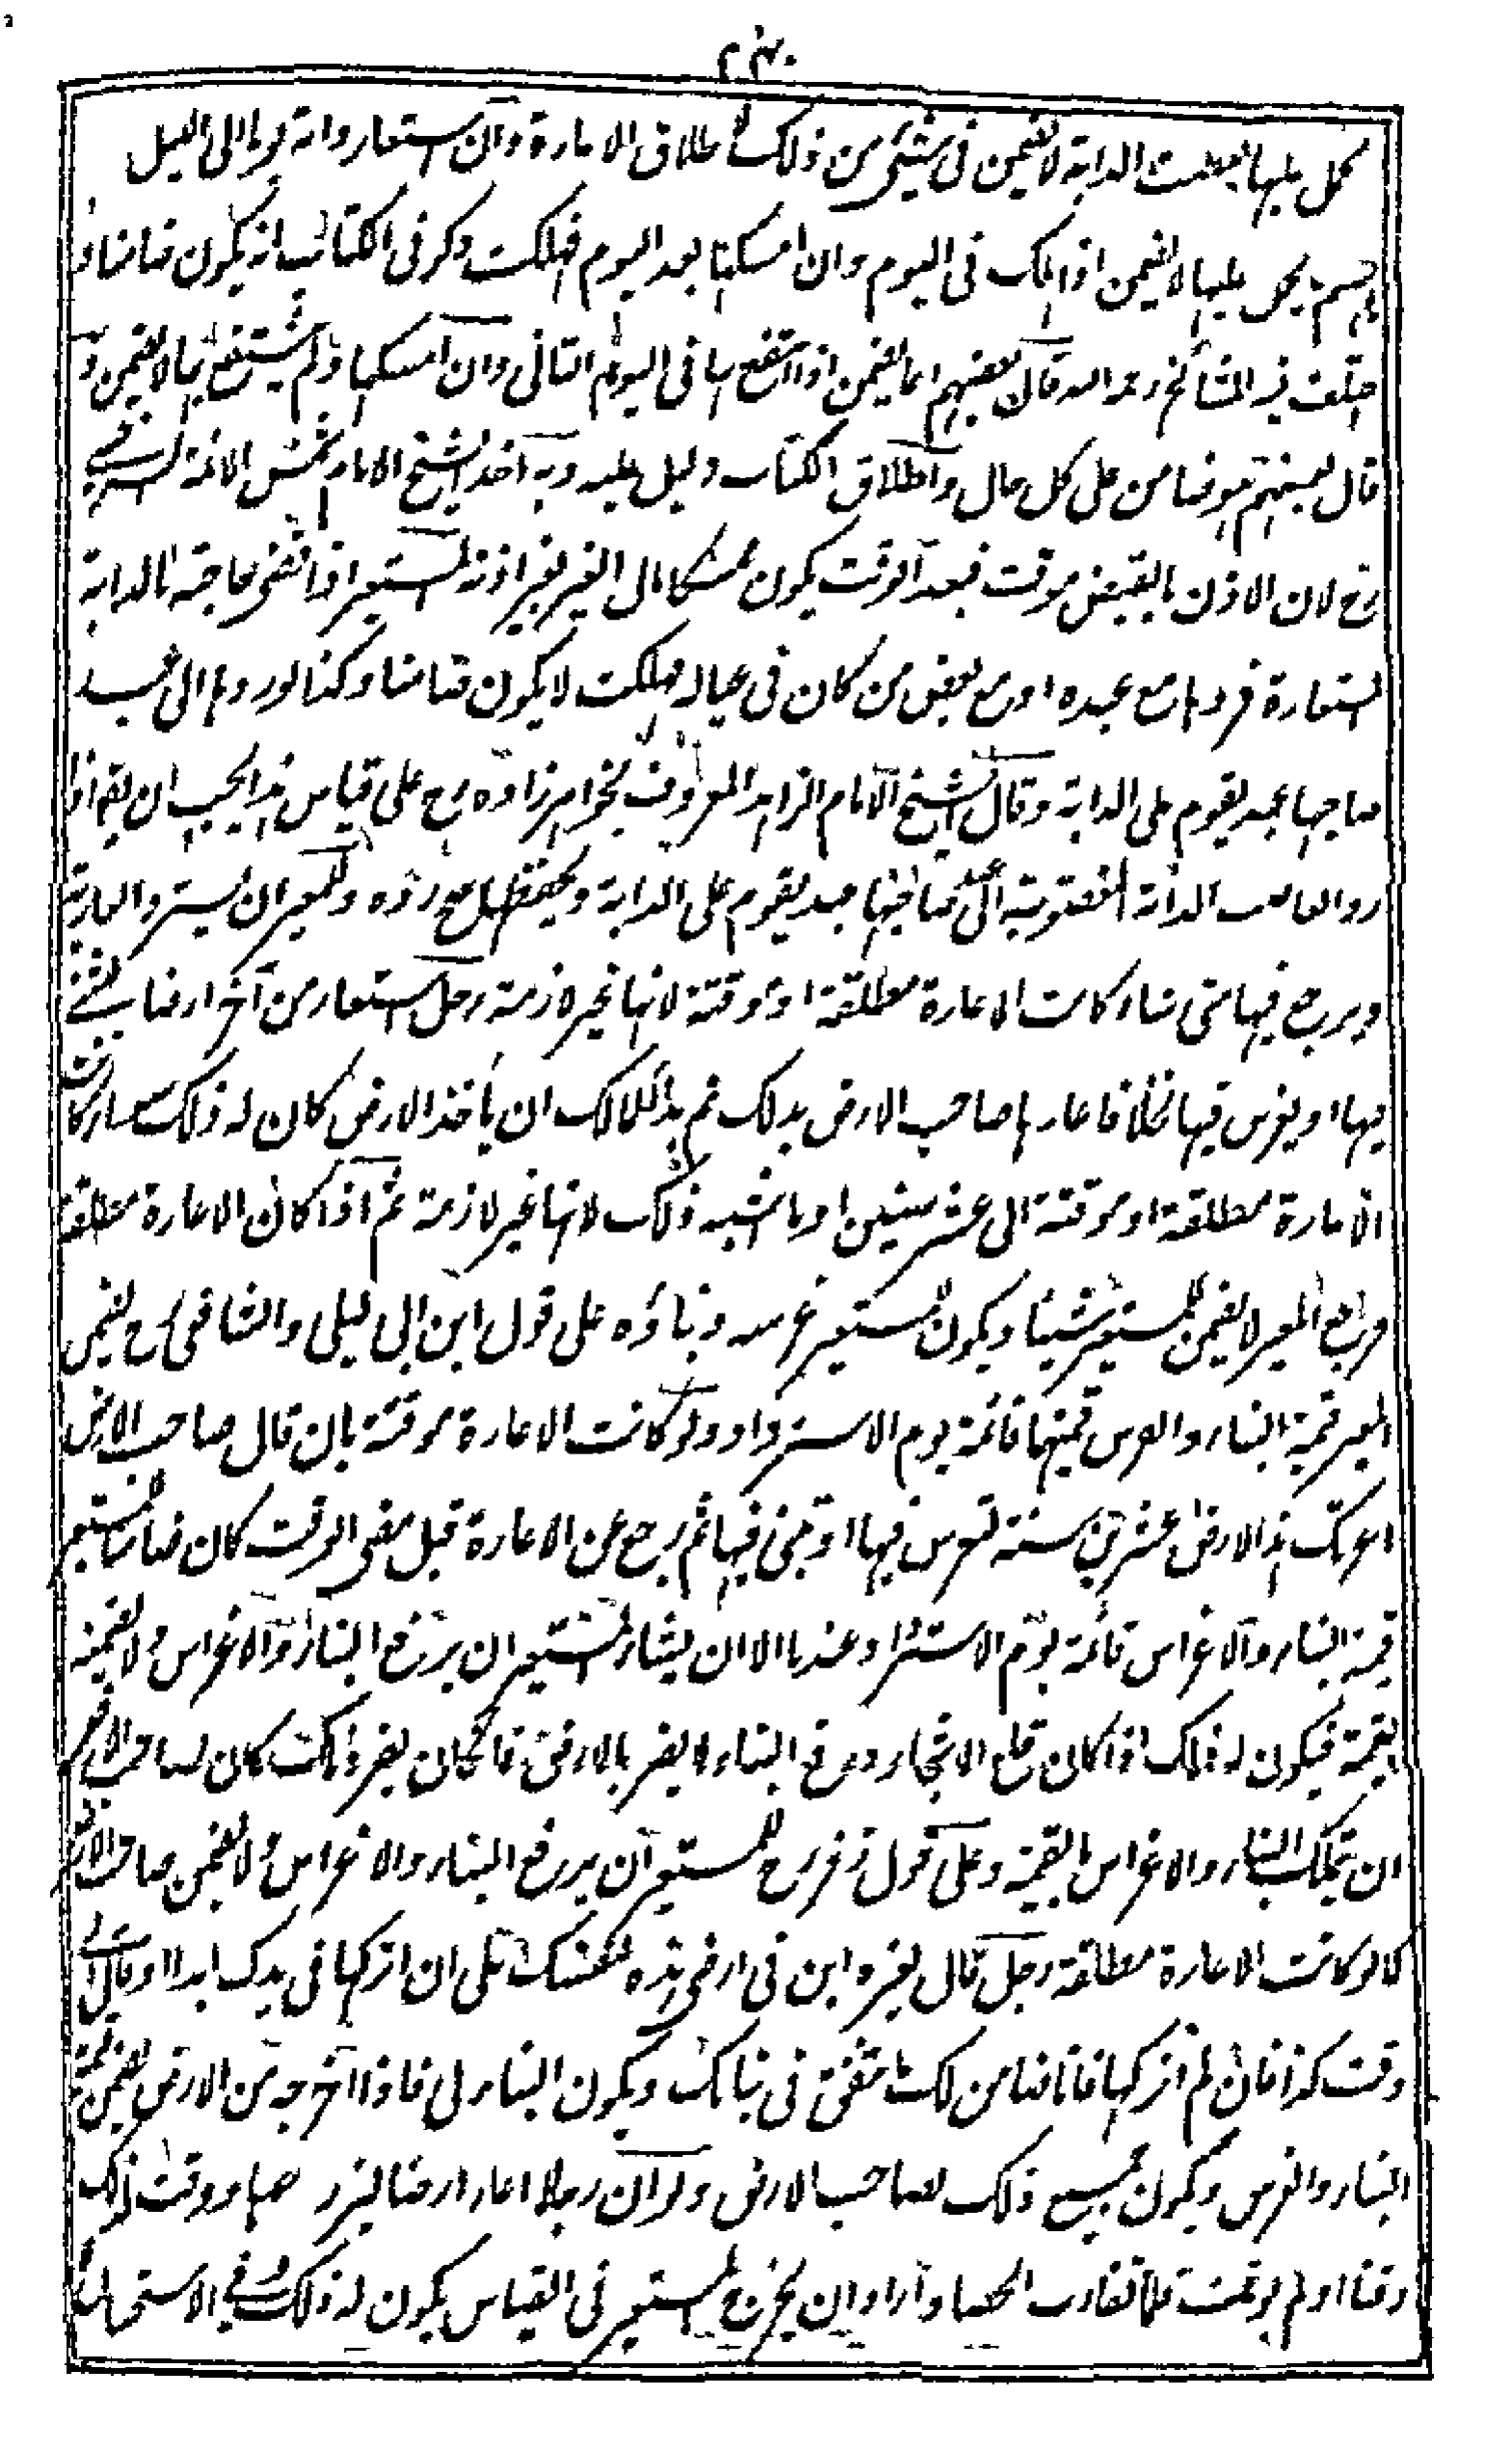 يحمل عليها فعطبت الدابة لا يضمن في شيئ من ذلك لاطلاق الاعارة وان استعار دابة يوما الى الليل
ولم يسم ما يحمل عليها لا يضمن اذا هلكت في اليوم وان امسكها بعد اليوم فهلكت ذكر في الكتاب انه يكون ضامنا و
اختلف فيه المشائخ رحمه الله قال بعضهم انما يضمن اذا انتفع بها في اليوم الثاني وان امسكها ولم ينتفع بها لا يضمن و
قال بعضهم هو ضامن على كل حال واطلاق الكتاب دليل عليه وبه اخذ الشيخ الامام شمس الائمة السرخسي
رح لان الاذن بالقبض موقت فبعد الوقت يكون ممسكا مال الغير بغير اذنه المستعير اذا قضى حاجته بالدابة
المستعارة فردها مع عبده او مع بعض من كان في عياله فهلكت لا يكون ضامنا وكذا لو ردها الى عبد
صاحبها عبد يقوم على الدابة وقال الشيخ الامام الزاهد المعروف بخواهرزاده رح على قياس هذا يجب ان يقع اذا
رد الغاصب الدابة المغصوبة الى صاحبها عبد يقوم على الدابة ويحفظها صح رده وللمعير ان يسترد العارية
ويرجع فيها متى شاء كانت الاعارة مطلقة او موقتة لانها غير لازمة رجل استعار من آخر ارضا يبني
فيها او يغرس فيها نخلا فاعارها صاحب الارض بذلك ثم بدا للمالك ان ياخذ الارض كان له ذلك سواء كانت
الاعارة مطلقة او موقتة الى عشر سنين او ما اشبه ذلك لانها غير لازمة ثم اذا كان الاعارة مطلقة
فرجع المعير لا يضمن للمستعير شيئا ويكون للمستعير غرسه وبناؤه على قول ابن ابي ليلى والشافعي رح يضمن
المعير قيمة البناء والغرس قيمتها قائمة يوم الاسترداد ولو كانت الاعارة موقتة بان قال صاحب الارض
اعرتك هذا الارض عشرين سنة لتغرس فيها او تبني فيها ثم رجع عن الاعارة قبل مضي الوقت كان ضامنا للمستعير
قيمة البناء والاغراس قائمة يوم الاسترداد عندنا الا ان يشاء المستعير ان يرفع البناء والاغراس ولا يضمنه
بقيمة فيكون له ذلك اذا كان قلع الاشجار ورفع البناء لا يضر بالارض فان كان يضر ذلك كان لصاحب الارض
ان يتملك البناء والاغراس بالقيمة وعلى قول زفر رح للمستعير ان يرفع البناء والاغراس ولا يضمن صاحب الارض
كما لو كانت الاعارة مطلقة رجل قال لغيره ابن في ارضي هذه لنفسك على ان اتركها في يدك ابدا او قال الى
وقت كذا فان لم اتركها فانا ضامن لك ما تنفق في بنائك ويكون البناء لي فاذا اخرجه من الارض يضمن قيمة
البناء والغرس ويكون جميع ذلك لصاحب الارض ولو ان رجلا اعار ارضا ليزرعها ووقت لذلك
وقتا او لم يوقت فلما تقارب الحصاد اراد ان يخرج المستعير في القياس يكون له ذلك وفي الاستحسان